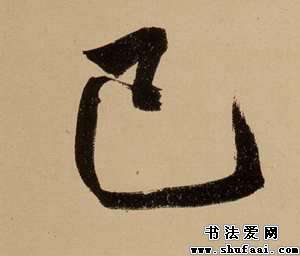 己
书法爱网
www.shufaai.com